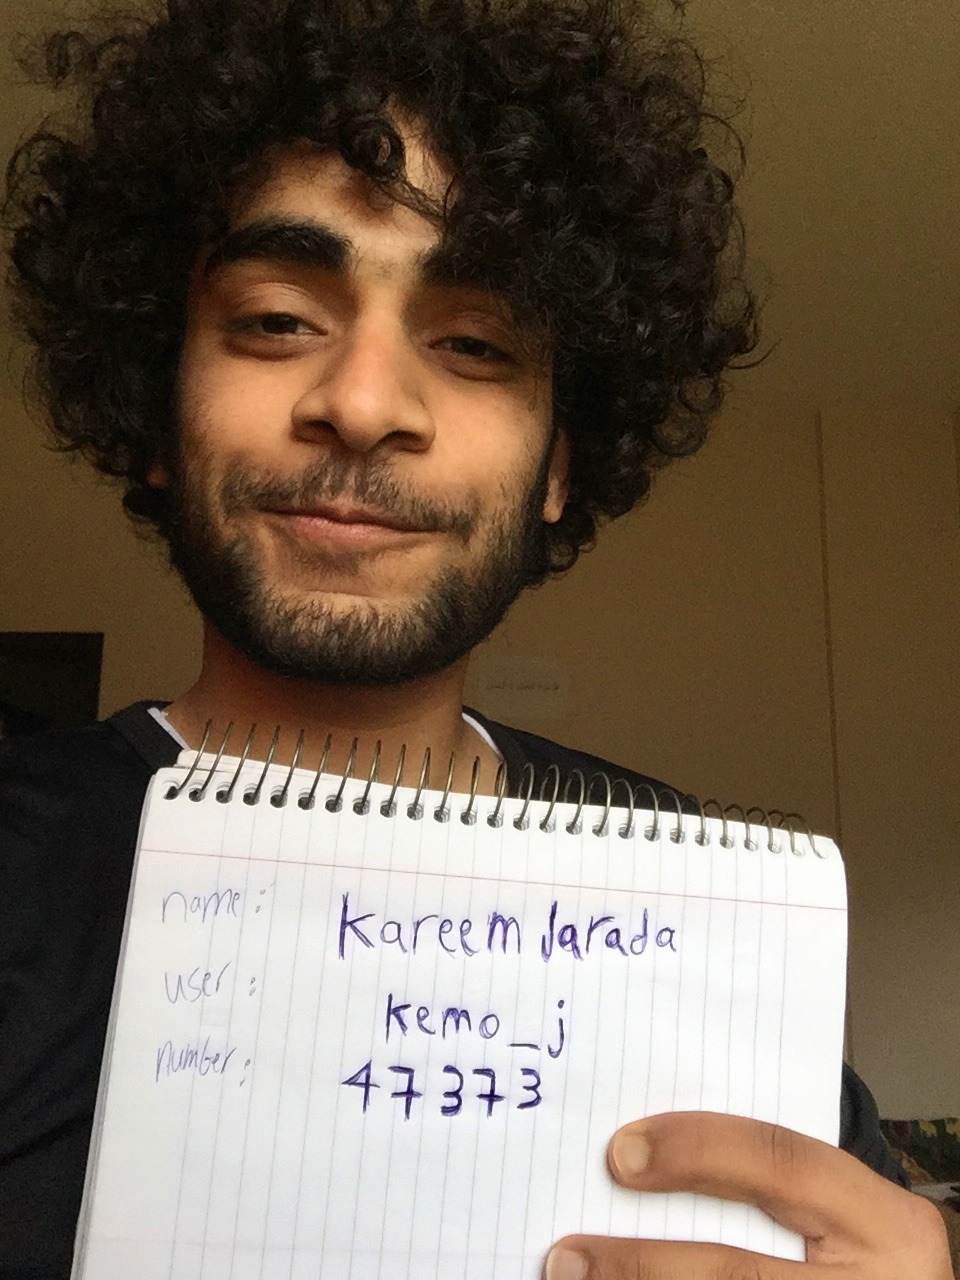 name: Kareem Jarada
user: kemo_j
number: 47373